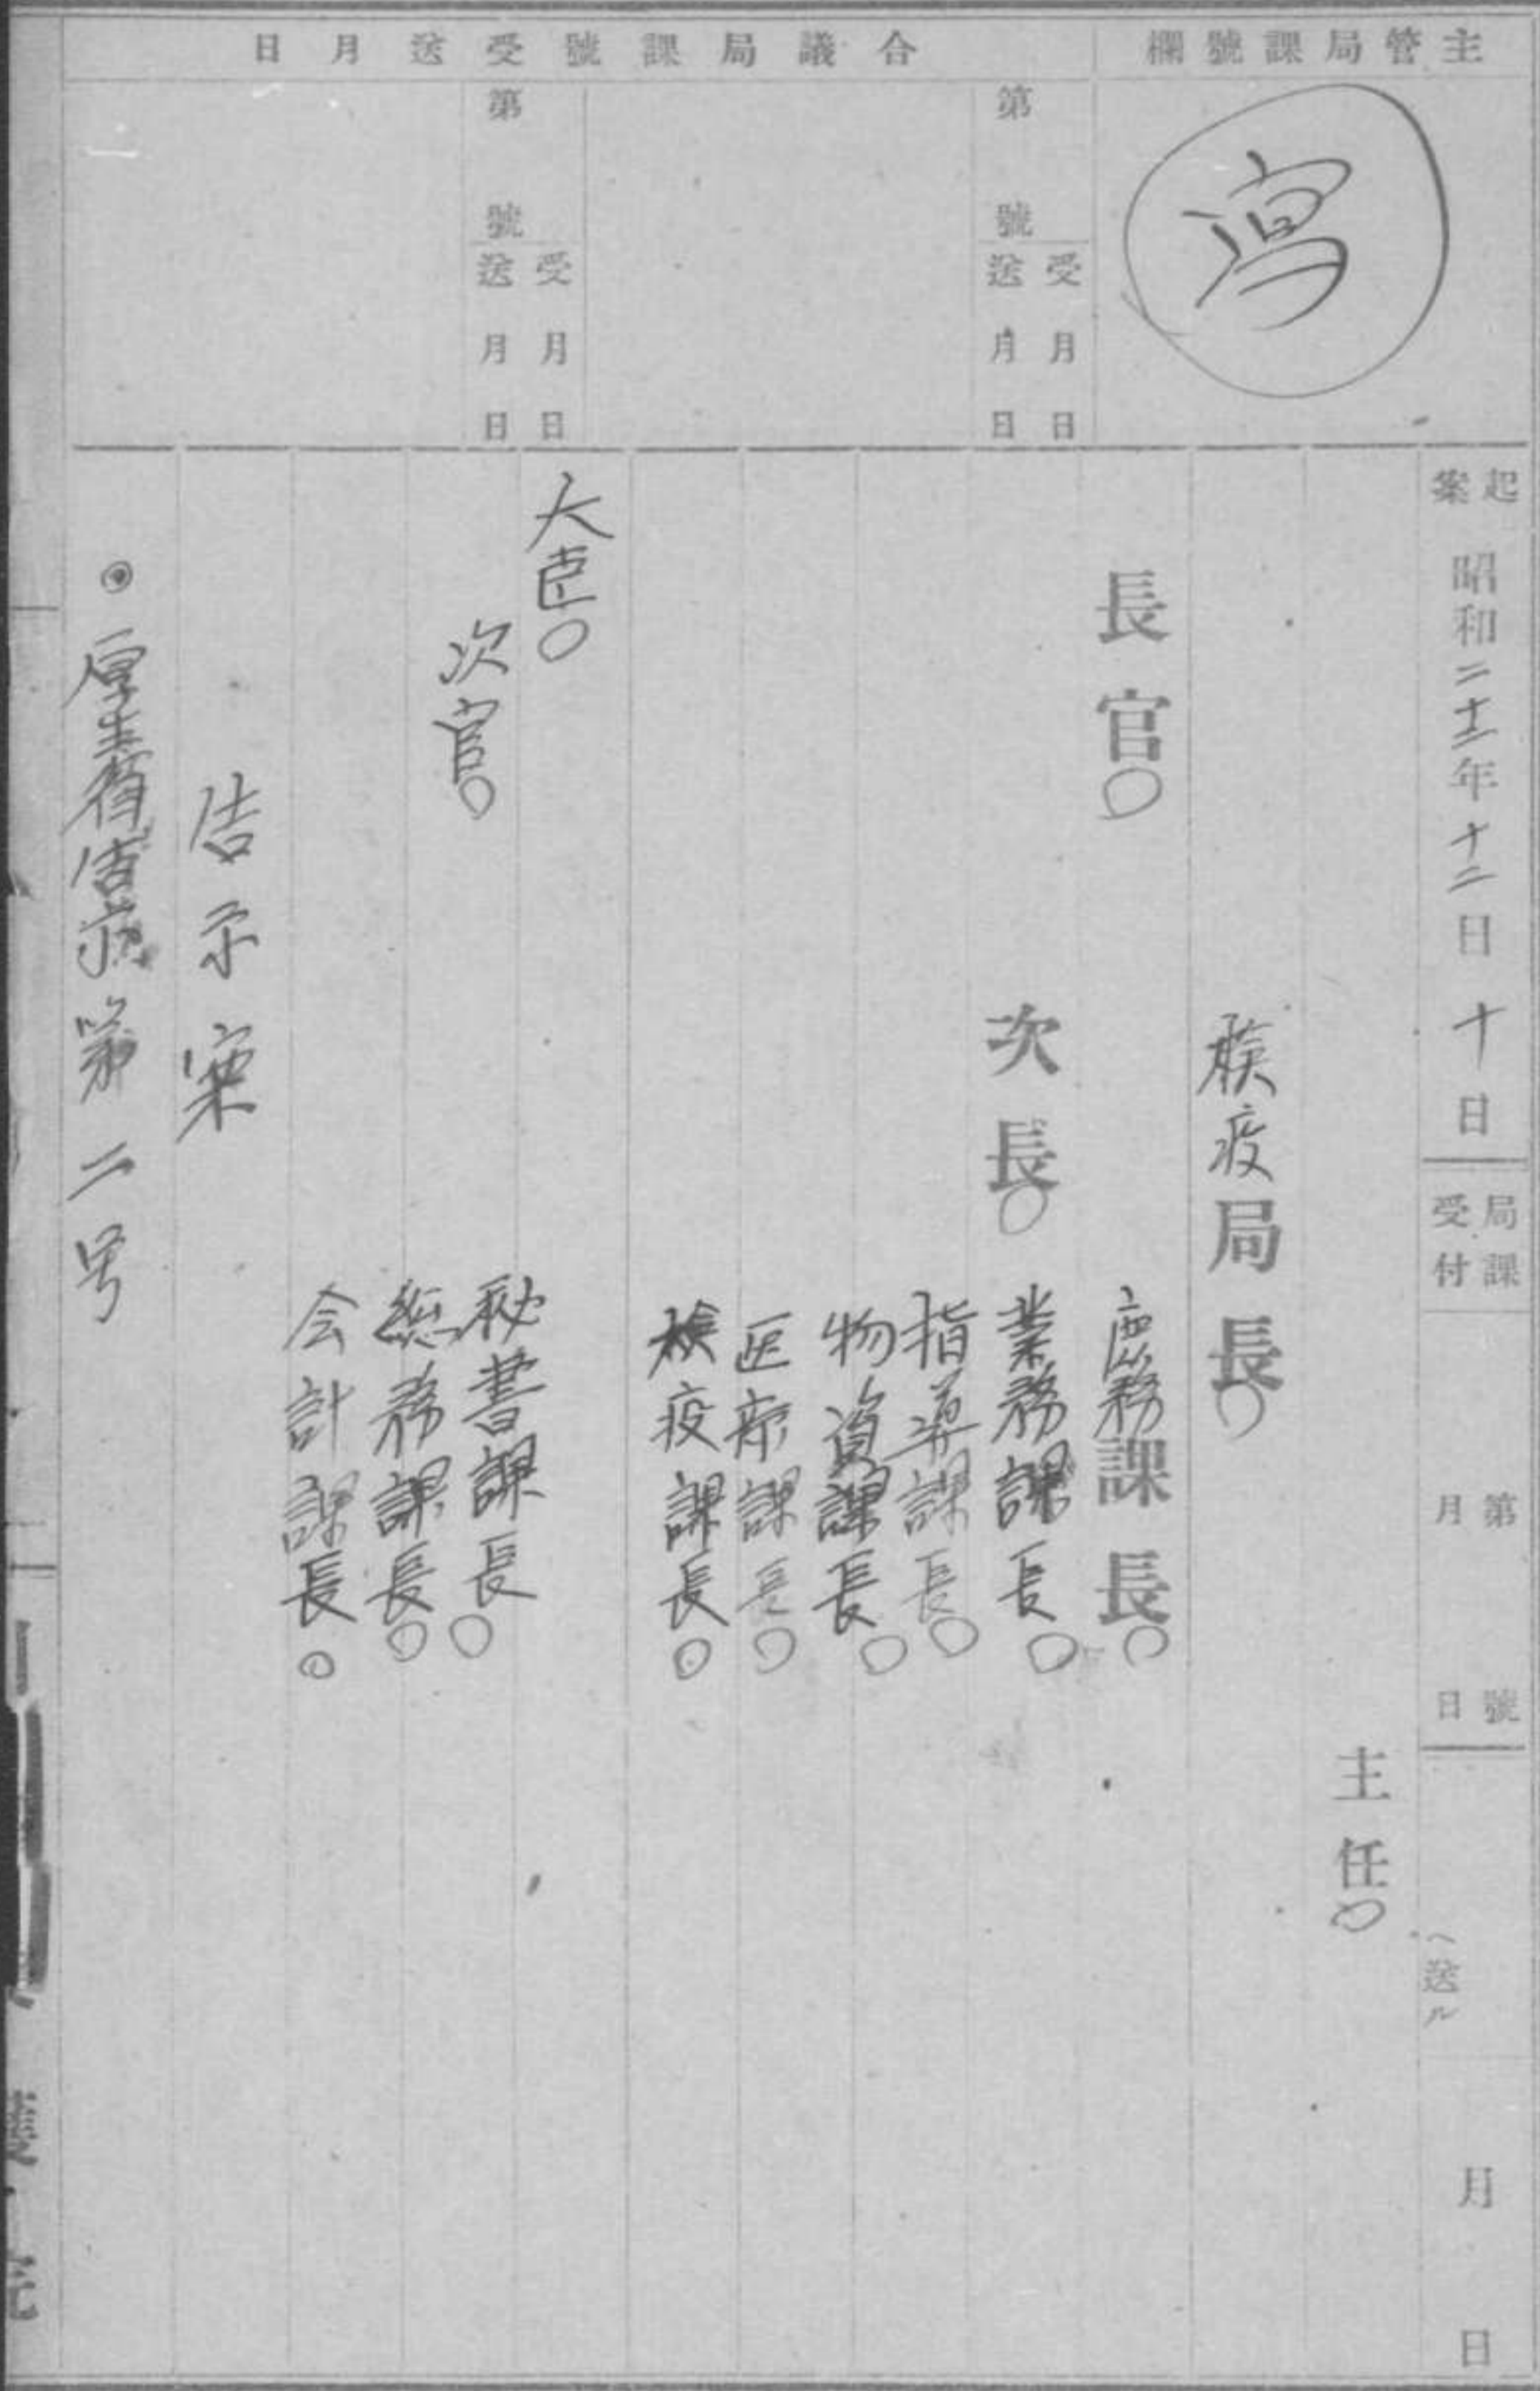 主管局課號欄
寫
合議局課號受送月日
第 號
受 月 日
送 月 日
第 號
受 月 日
送 月 日
起案 昭和二十二年十二日十日
局課受付
第 號
月 日
ヘ送ル
月 日
主任〇
検疫局長〇
長官〇
庶務課長〇
次長〇
業務課長〇
指導課長〇
物資課長〇
医療課長〇
検疫課長〇
大臣〇
次官〇
秘書課長〇
総務課長〇
会計課長〇
告示案
◉厚生省告示第二号